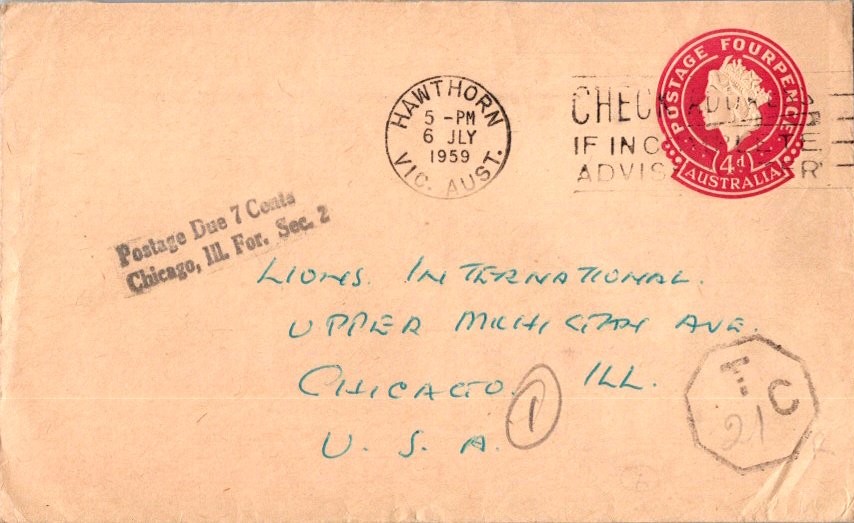 POSTAGE FOURPENCE
4d
AUSTRALIA
HAWTHORN
5 -PM
6 JLY
1959
VIC. AUST.
CHECK
IF
ADVISE
Postage Due 7 Cents
Chicago, Ill. For. Sec. 2
LIONS. INTERNATIONAL.
UPPER MICHIGAN AVE.
CHICAGO. ILL.
U. S. A.
1
F. C
21